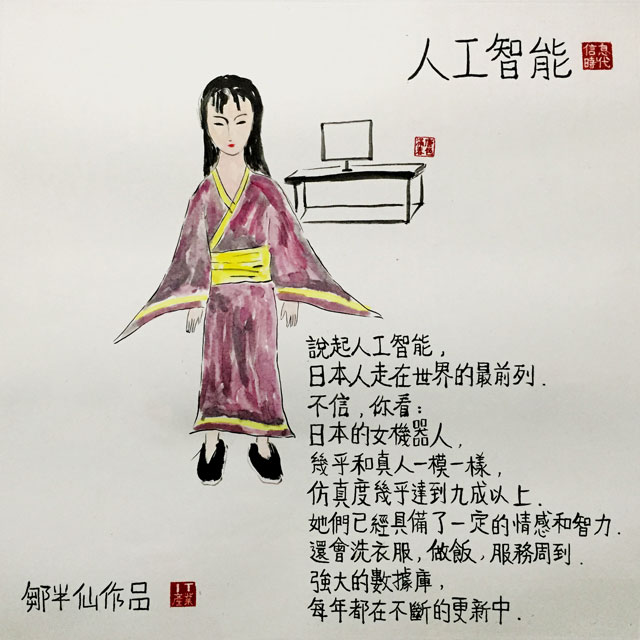 人工智能
信息時代
說起人工智能,
日本人走在世界的最前列.
不信,你看:
日本的女機器人,
幾乎和真人一模一樣,
仿真度幾乎達到九成以上.
她們已經具備了一定的情感和智力.
還會洗衣服,做飯,服務周到.
強大的數據庫,
每年都在不斷的更新中.
鄒半仙作品